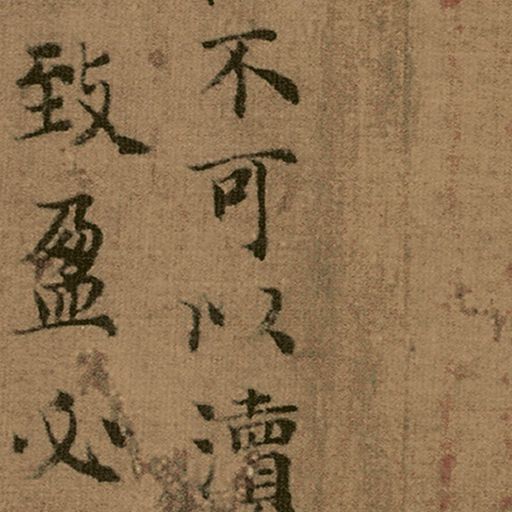 不可以瀆
致盈必